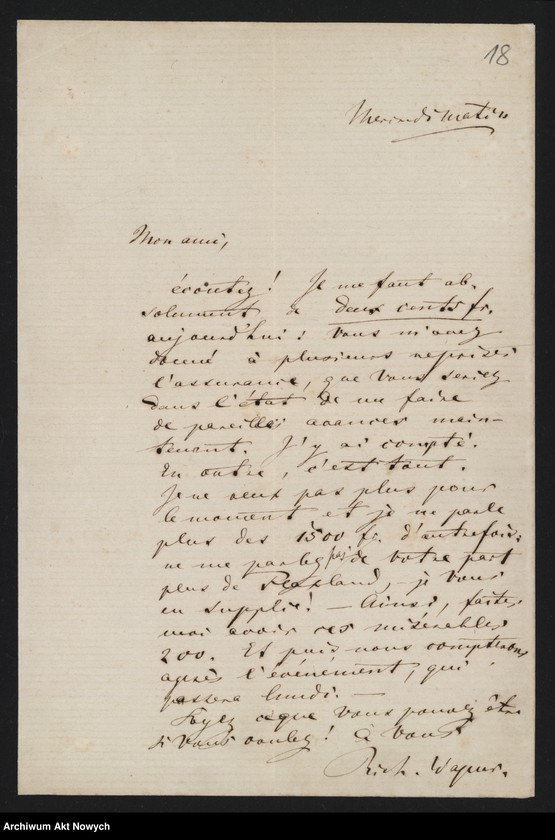 18
Mercredi matin
Mon ami,
écoutez! Je me faut ab-
solument de deux cents fr.
aujourd'hui: Vous m'avez
donné à plusieurs reprises
l'assurance, que Vous seriez
dans l'état de me faire
de pareilles avances main-
tenant. J'y ai compté.
En outre, c'est tout.
Je ne veux pas plus pour
le moment et je ne parle
plus des 1500 fr. d'autrefois:
ne me parlez pas de votre part
plus de Flaxland, je vous
en supplie! — Ainsi, faites
moi avoir ces misérables
200. Et puis nous compterons
après l'événement, qui
passera lundi. —
Soyez ce que Vous pouvez être
si Vous voulez! à Vous
Rich. Wagner.
Archiwum Akt Nowych